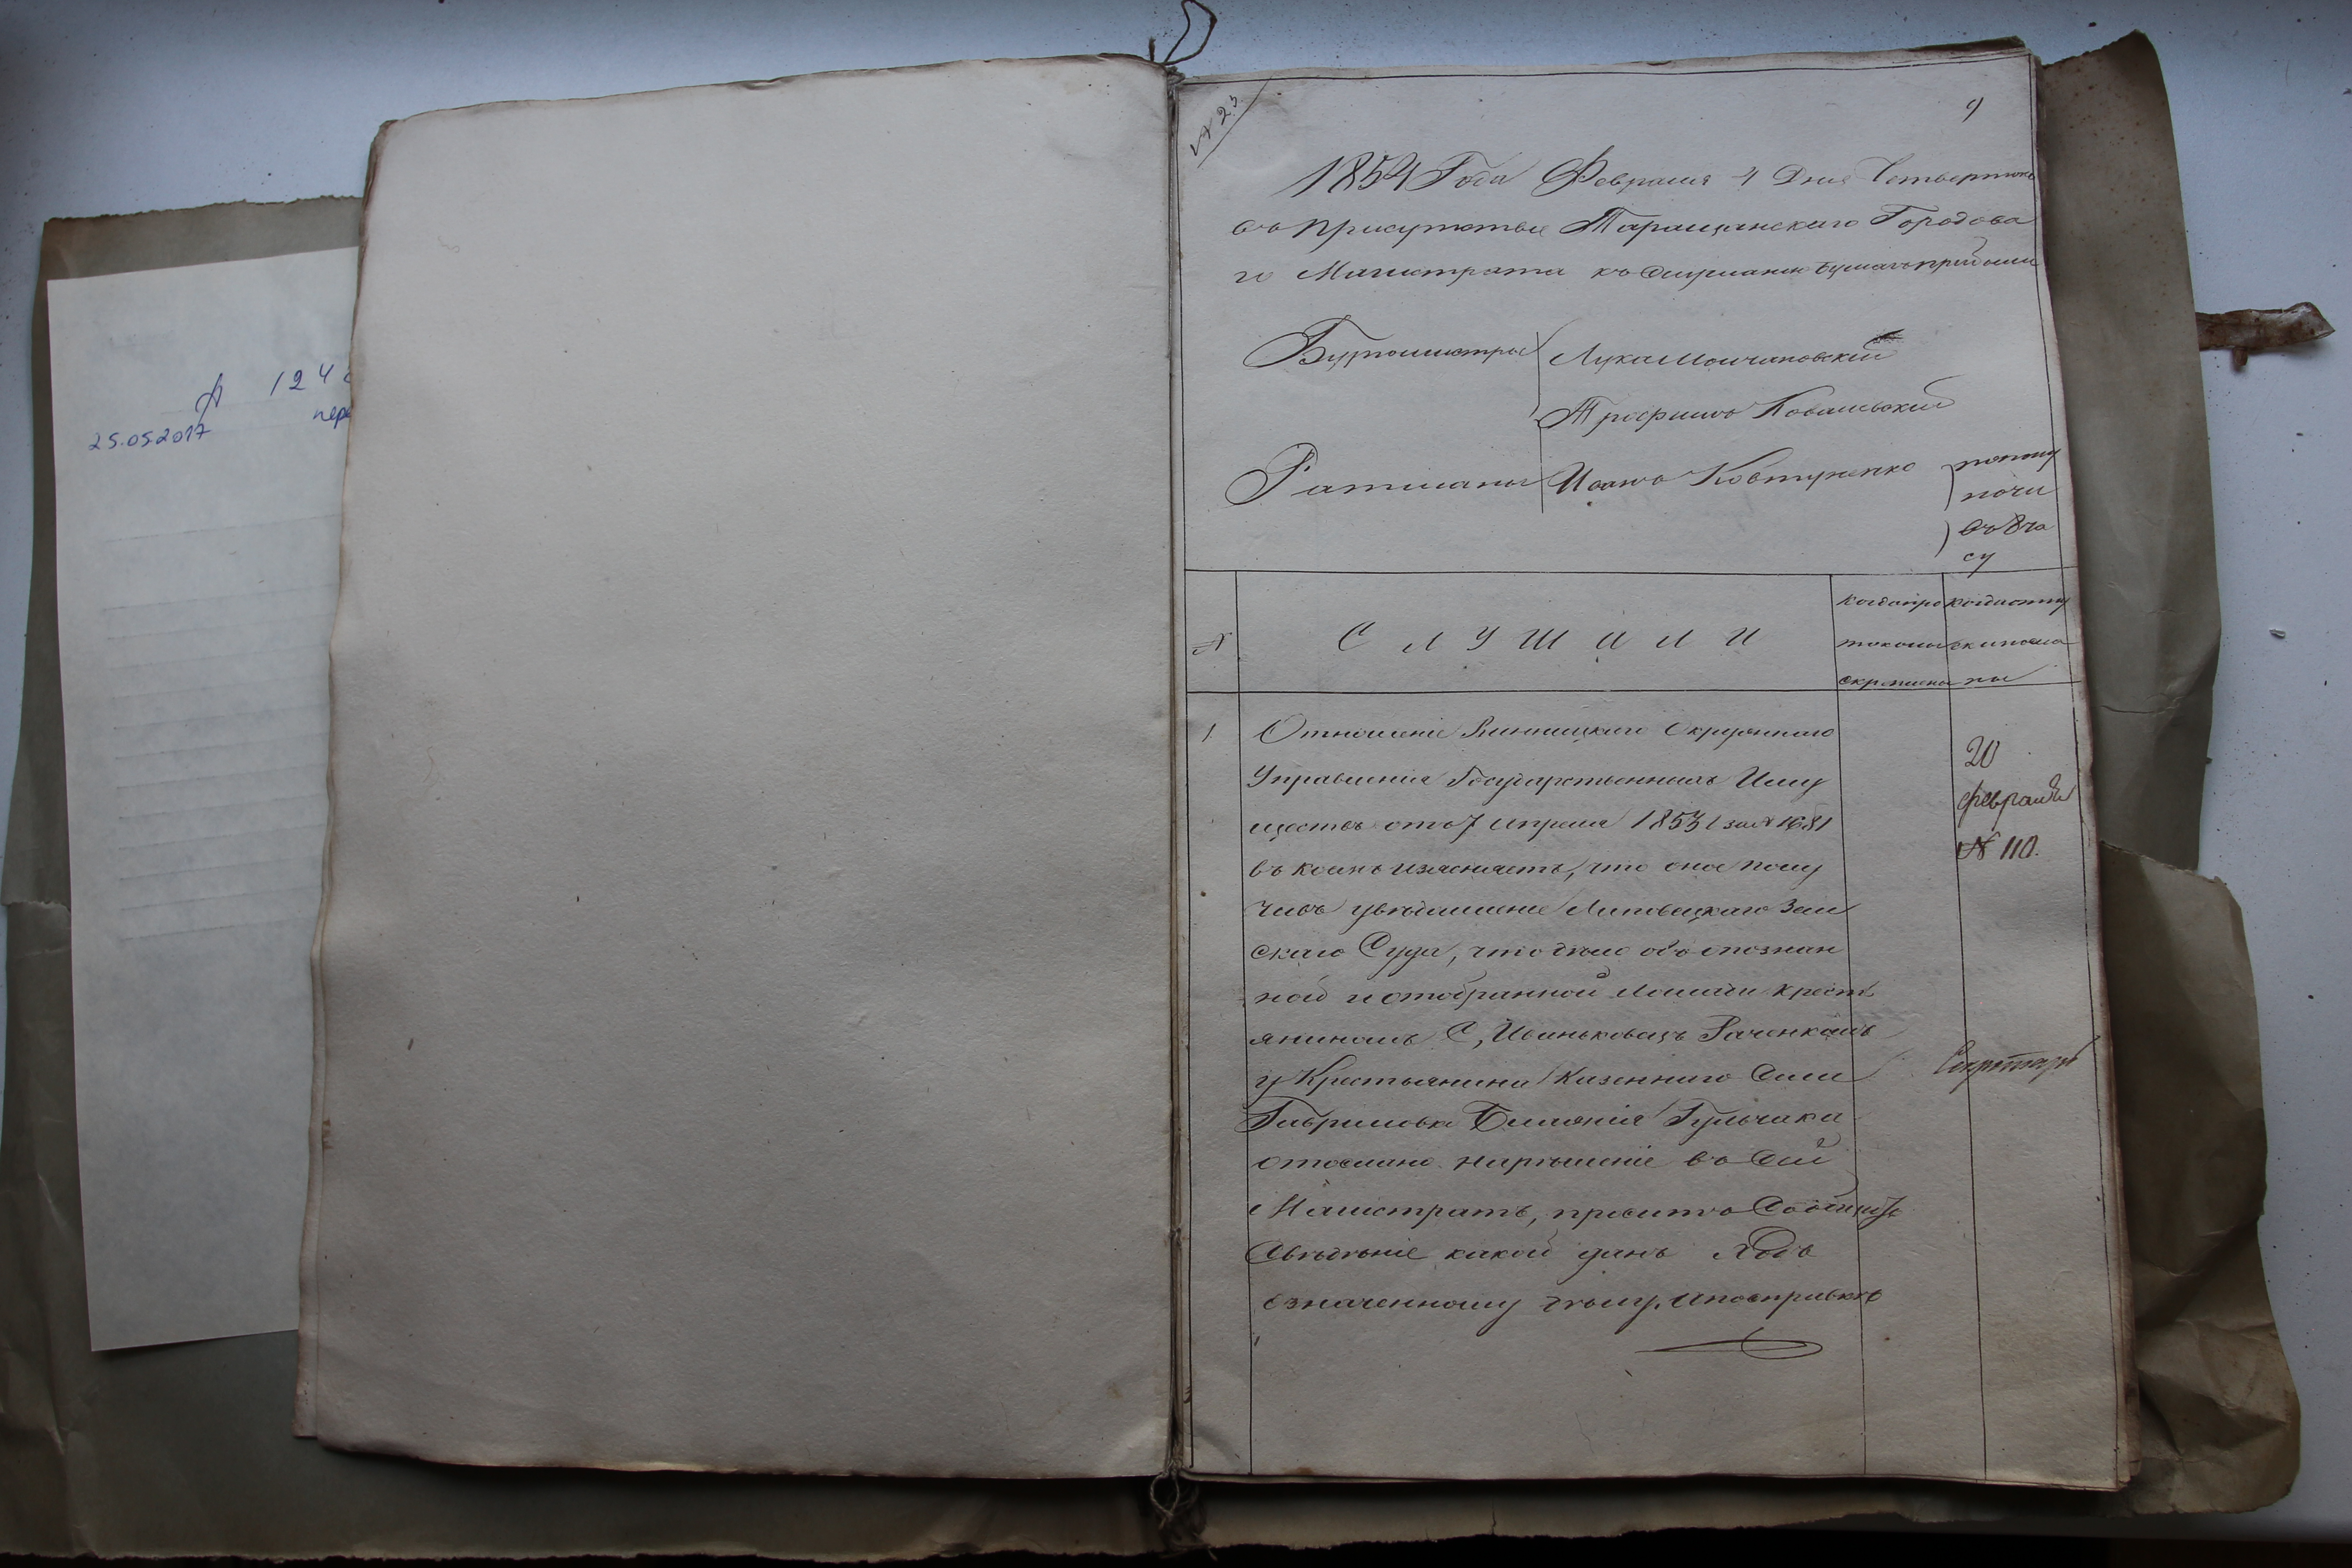 А 124
25.05.2017 пере
№ 23.
9
1854 Года Февраля 4 Дня Четвертокъ
въ присутствіе Таращанскаго Городова
го Магистрата къ слушанію бумагъ прибыли
Бургомистры Лука Молчановскій
Трофимъ Ковальскій
Ратманы Иванъ Ковтуненко
полу
ночи
въ 8 ча
су
№
СЛУШАЛИ
когда про
токолы
скреплены
когда отпу
ски посла
ны
1 Отношеніе Винницкаго Окружнаго
Управленія Государственныхъ Иму
ществъ отъ 7 Апреля 1853 г за № 1681
въ коемъ изясняетъ, что оно полу
чивъ увѣдомленіе Липовецкаго Зем
скаго Суда, что дѣло объ опознан
ной и отобранной Лошади крестъ
яниномъ С, Ивиньковецъ Раченкомъ
у Крестьянина Казеннаго Села
Гавриловки Гульчака
отослано на рѣшеніе въ Сей
Магистратъ, проситъ Сообщить
Свѣдѣніе какой данъ Ходъ
означенному дѣлу. и по справкѣ
20
февраля
№ 110.
Секретарь